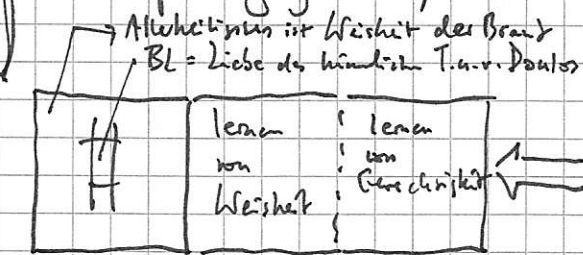 Allerheiligstes ist Weisheit der Braut
BL = Liebe des himmlischen T. u. v. Doulos
lernen
von
Weisheit
lernen
von
Gerechtigkeit